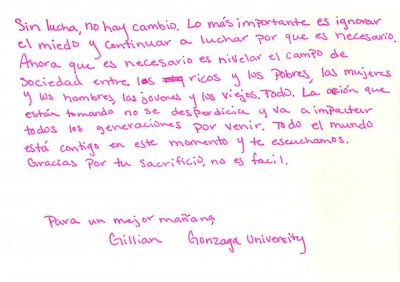 Sin lucha, no hay cambio. Lo más importante es ignorar
el miedo y continuar a luchar por que es necesario.
Ahora que es necesario es nivelar el campo de
sociedad entre los ricos y los pobres, las mujeres
y los hombres, las jovenes y los viejos. Todo. La acción que
están tomando no se desperdicia y va a impactar
todos los generaciones por venir. Todo el mundo
está contigo en este momento y te escuchamos.
Gracias por tu sacrificio, no es facil.
Para un mejor mañana,
Gillian Gonzaga University